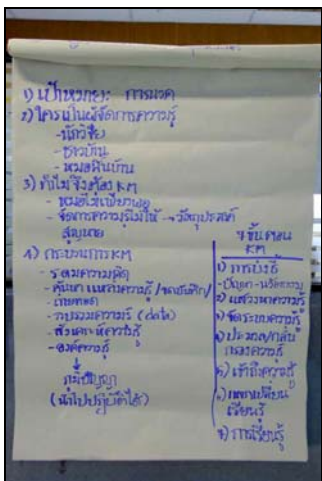 1) เป้าหมาย: การนวด
2) ใครเป็นผู้จัดการความรู้
- นักวิจัย
- ชาวบ้าน
- หมอพื้นบ้าน
3) ทำไมจึงต้อง KM
- หมอไม่เพียงพอ
- จัดการความรู้ไม่ให้ → วัตถุประสงค์
สูญหาย
4) กระบวนการ KM
- ระดมความคิด
- ค้นหา แหล่งความรู้ / จดบันทึก /
ถ่ายทอด
- รวบรวมความรู้ (data)
- สังเคราะห์ความรู้
- องค์ความรู้
↓
ภูมิปัญญา
(นำไปปฏิบัติได้)
7 ขั้นตอน
KM
1) การบ่งชี้
2) แสวงหาความรู้
3) จัดระบบความรู้
4) ประมวล/กลั่น
กรองความรู้
5) เข้าถึงความรู้
6) แลกเปลี่ยน
เรียนรู้
7) การเรียนรู้